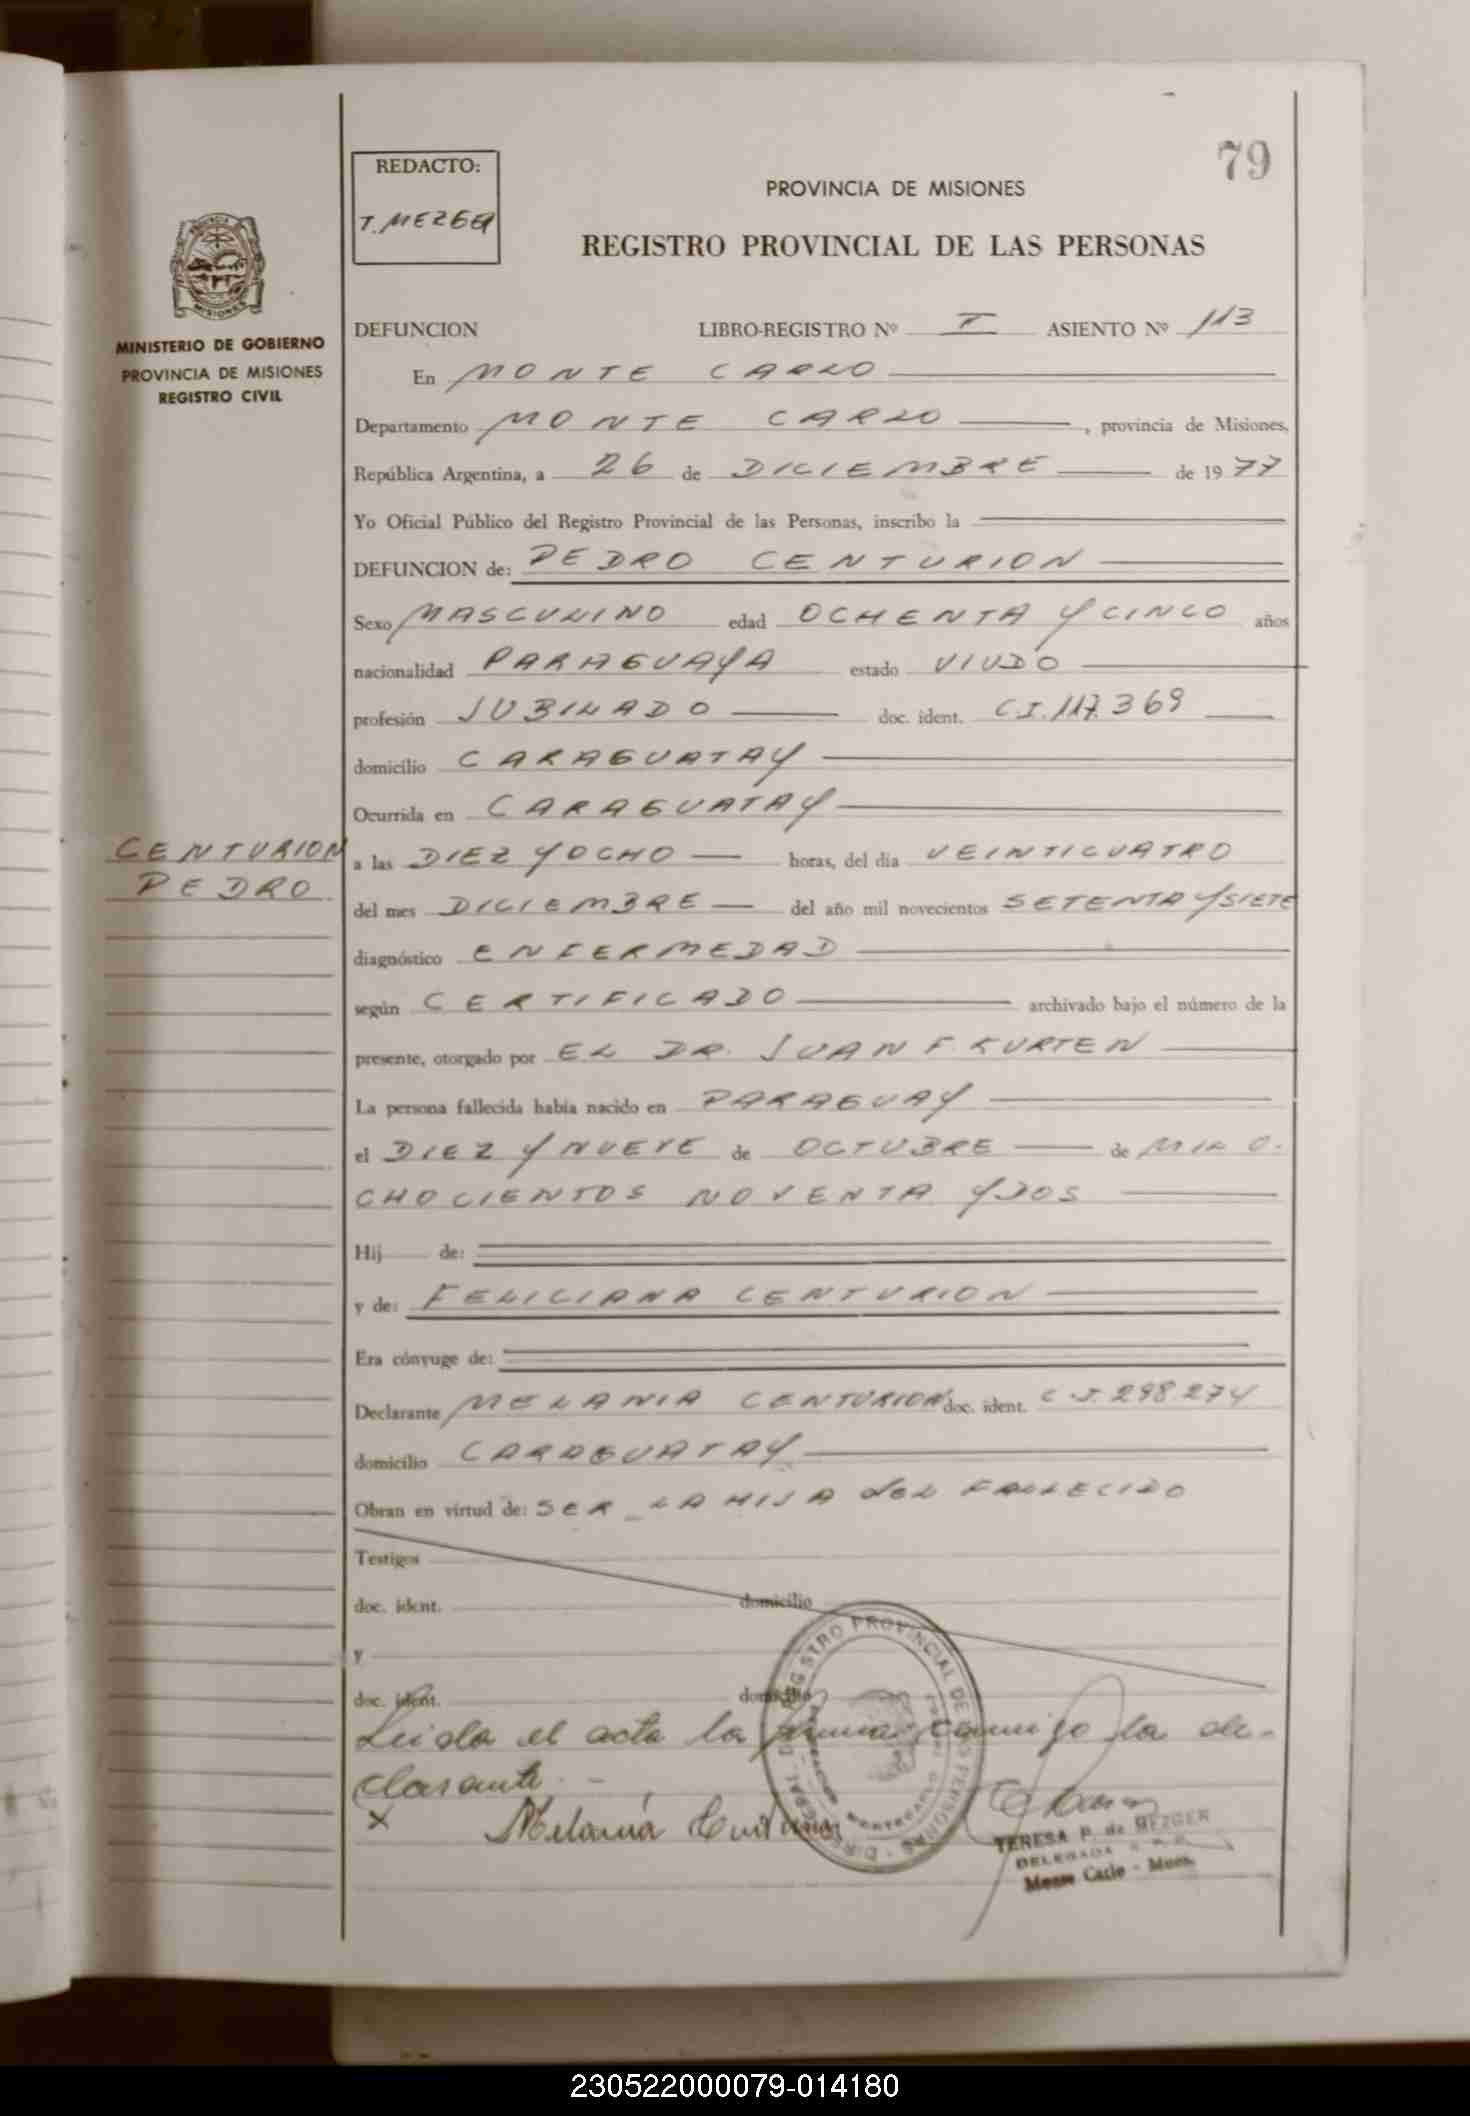 79
REDACTO:
T. MEZGER
PROVINCIA DE MISIONES
REGISTRO PROVINCIAL DE LAS PERSONAS
MINISTERIO DE GOBIERNO
PROVINCIA DE MISIONES
REGISTRO CIVIL
DEFUNCION LIBRO-REGISTRO Nº I ASIENTO Nº 113
En MONTE CARLO
Departamento MONTE CARLO, provincia de Misiones,
República Argentina, a 26 de DICIEMBRE de 1977
Yo Oficial Público del Registro Provincial de las Personas, inscribo la
DEFUNCION de: PEDRO CENTURION
Sexo MASCULINO edad OCHENTA Y CINCO años
nacionalidad PARAGUAYA estado VIUDO
profesión JUBILADO doc. ident. C.I. 117.369
domicilio CARAGUATAY
Ocurrida en CARAGUATAY
CENTURION
PEDRO
a las DIEZ Y OCHO horas, del día VEINTICUATRO
del mes DICIEMBRE del año mil novecientos SETENTA Y SIETE
diagnóstico ENFERMEDAD
según CERTIFICADO archivado bajo el número de la
presente, otorgado por EL DR. JUAN F. KURTEN
La persona fallecida había nacido en PARAGUAY
el DIEZ Y NUEVE de OCTUBRE de MIL O-
CHOCIENTOS NOVENTA Y DOS
Hij de:
y de: FELICIANA CENTURION
Era cónyuge de:
Declarante MELANIA CENTURION doc. ident. C.I. 298.274
domicilio CARAGUATAY
Obran en virtud de: SER LA HIJA DEL FALLECIDO
Testigos
doc. ident. domicilio
y
doc. ident. domicilio
Leida el acta la firma conmigo la de-
clarante.-
x Melania Centurion
DIREC. GRAL. DEL REGISTRO PROVINCIAL DE LAS PERSONAS
MONTECARLO
TERESA P. de MEZGER
DELEGADA
Monte Carlo - Mnes.
230522000079-014180